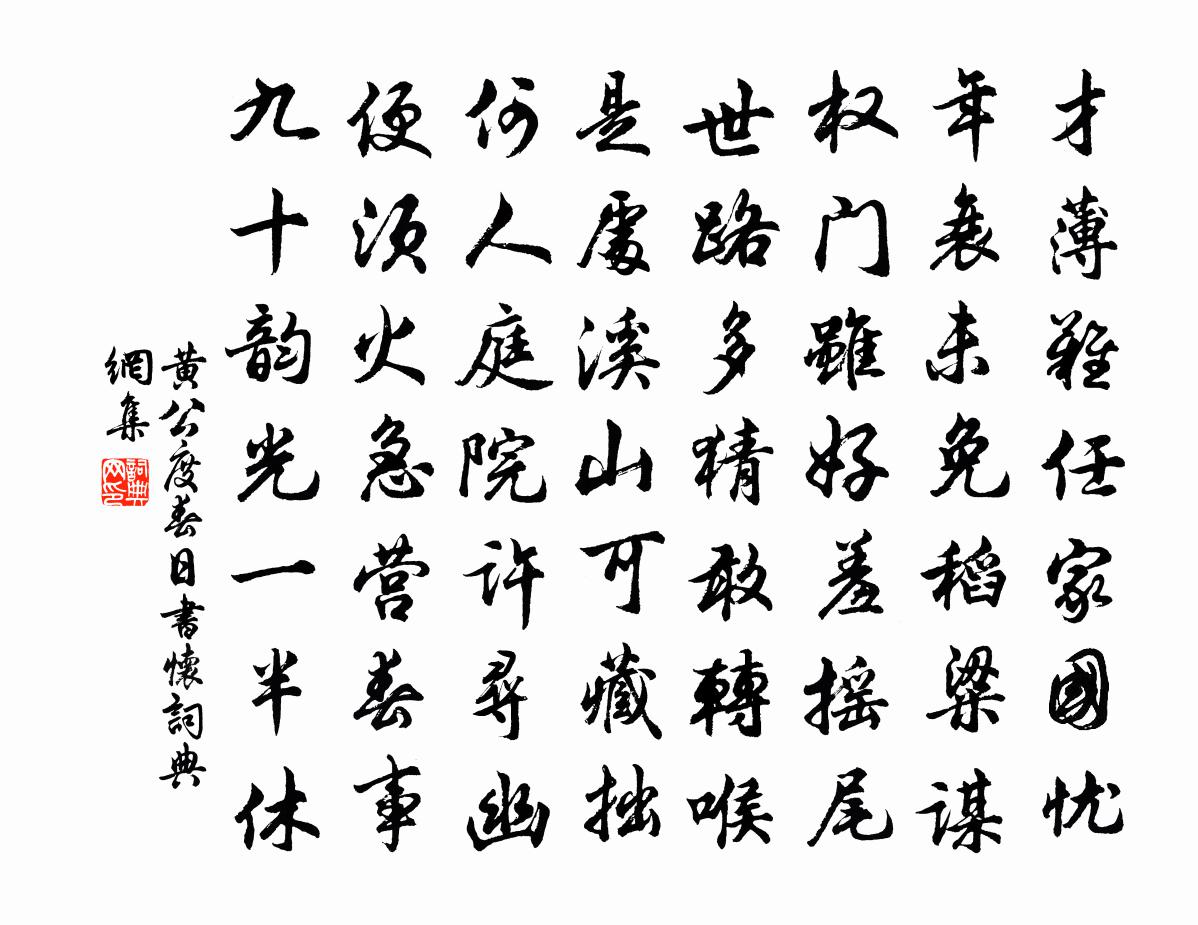 才薄難任家國忧
年衰未免稻粱谋
权门雖好羞摇尾
世路多猜敢轉喉
是處溪山可藏拙
何人庭院许尋幽
便须火急营春事
九十韵光一半休
黄公度春日書懷詞典
網集
詞典
网印